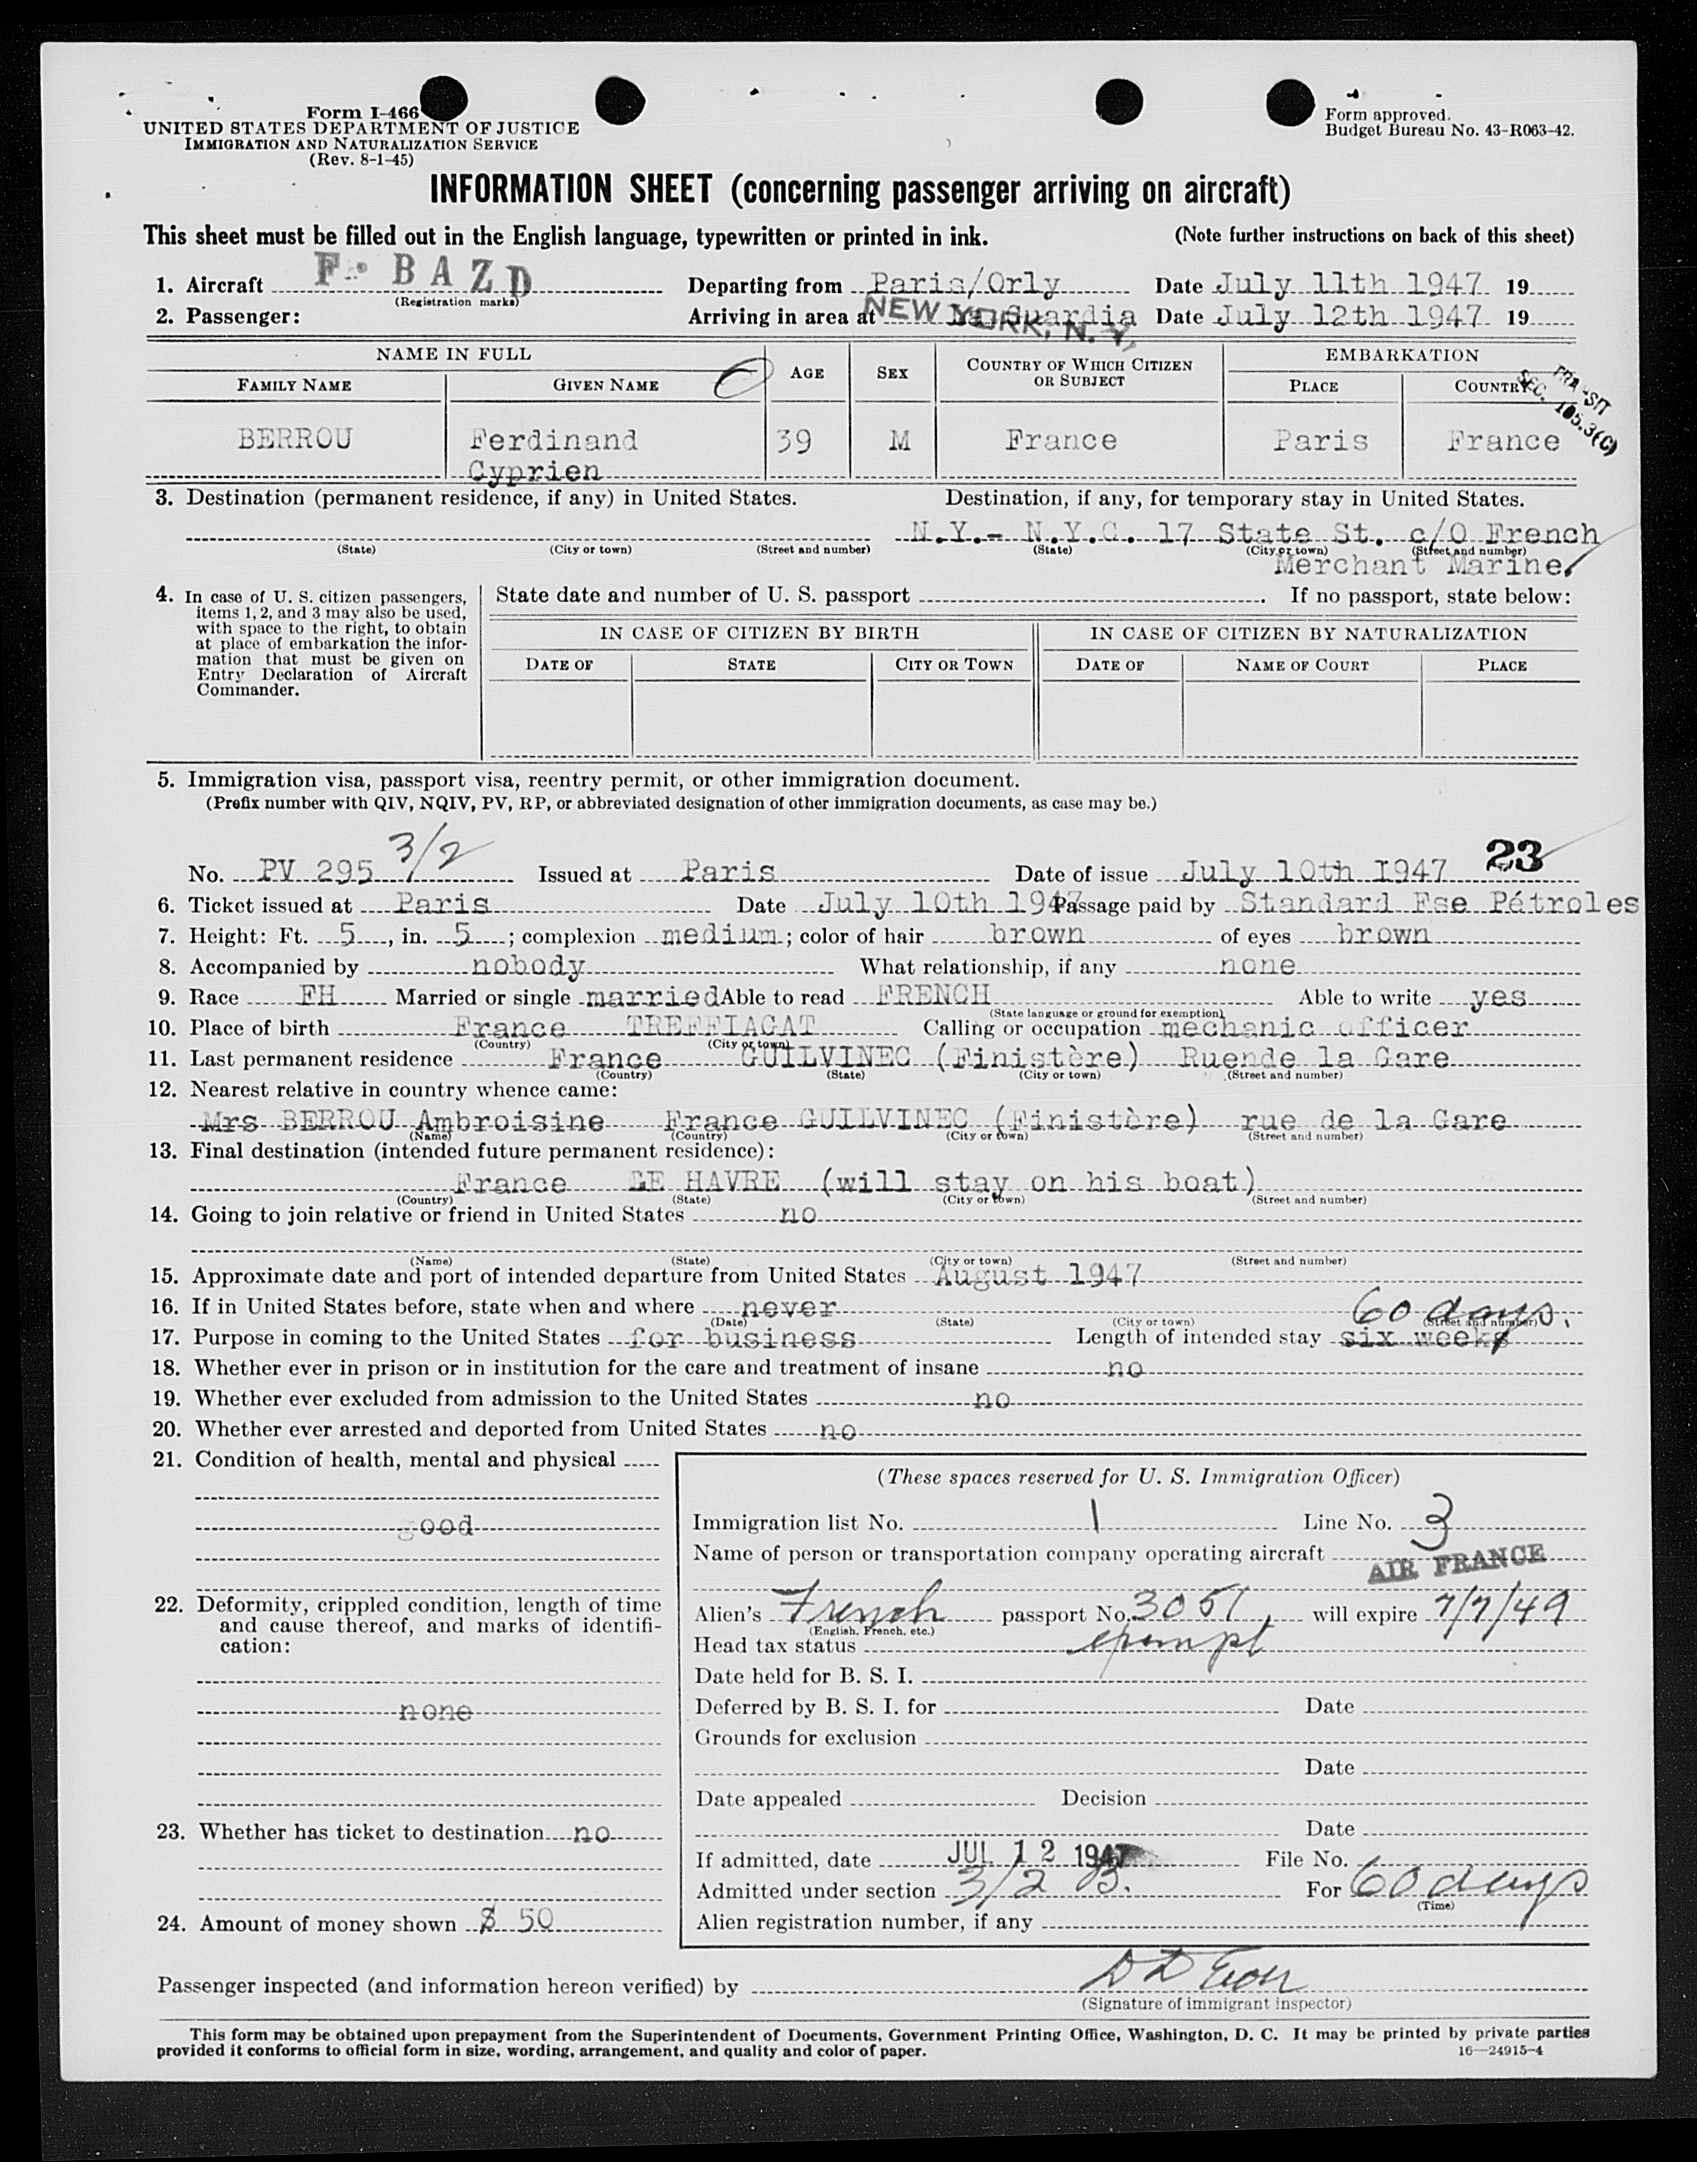 Form I-466
UNITED STATES DEPARTMENT OF JUSTICE
IMMIGRATION AND NATURALIZATION SERVICE
(Rev. 8-1-45)
Form approved.
Budget Bureau No. 43-R063-42.
INFORMATION SHEET (concerning passenger arriving on aircraft)
This sheet must be filled out in the English language, typewritten or printed in ink. (Note further instructions on back of this sheet)
1. Aircraft F-BAZD Departing from Paris/Orly Date July 11th 1947 19
(Registration marks)
2. Passenger: Arriving in area at La Guardia NEW YORK, N. Y. Date July 12th 1947 19
NAME IN FULL AGE SEX COUNTRY OF WHICH CITIZEN OR SUBJECT EMBARKATION
FAMILY NAME GIVEN NAME PLACE COUNTRY
TRANSIT
SEC. 105.3(C)
BERROU Ferdinand 39 M France Paris France
Cyprien
3. Destination (permanent residence, if any) in United States. Destination, if any, for temporary stay in United States.
N.Y.- N.Y.C. 17 State St. c/O French
(State) (City or town) (Street and number) (State) (City or town) (Street and number)
Merchant Marine
4. In case of U. S. citizen passengers, items 1, 2, and 3 may also be used, with space to the right, to obtain at place of embarkation the information that must be given on Entry Declaration of Aircraft Commander.
State date and number of U. S. passport . If no passport, state below:
IN CASE OF CITIZEN BY BIRTH IN CASE OF CITIZEN BY NATURALIZATION
DATE OF STATE CITY OR TOWN DATE OF NAME OF COURT PLACE
5. Immigration visa, passport visa, reentry permit, or other immigration document.
(Prefix number with QIV, NQIV, PV, RP, or abbreviated designation of other immigration documents, as case may be.)
3/2 23
No. PV 295 Issued at Paris Date of issue July 10th 1947
6. Ticket issued at Paris Date July 10th 1947 Passage paid by Standard Fse Pétroles
7. Height: Ft. 5, in. 5; complexion medium; color of hair brown of eyes brown
8. Accompanied by nobody What relationship, if any none
9. Race FH Married or single married Able to read FRENCH Able to write yes
(State language or ground for exemption)
10. Place of birth France TREFFIAGAT Calling or occupation mechanic officer
(Country) (City or town)
11. Last permanent residence France GUILVINEC (Finistère) Ruende la Gare
(Country) (State) (City or town) (Street and number)
12. Nearest relative in country whence came:
Mrs BERROU Ambroisine France GUILVINEC (Finistère) rue de la Gare
(Name) (Country) (City or town) (Street and number)
13. Final destination (intended future permanent residence):
France LE HAVRE (will stay on his boat)
(Country) (State) (City or town) (Street and number)
14. Going to join relative or friend in United States no
(Name) (State) (City or town) (Street and number)
15. Approximate date and port of intended departure from United States August 1947
16. If in United States before, state when and where never
60 days.
(Date) (State) (City or town) (Street and number)
17. Purpose in coming to the United States for business Length of intended stay six weeks
18. Whether ever in prison or in institution for the care and treatment of insane no
19. Whether ever excluded from admission to the United States no
20. Whether ever arrested and deported from United States no
21. Condition of health, mental and physical
good
22. Deformity, crippled condition, length of time and cause thereof, and marks of identification:
none
23. Whether has ticket to destination no
24. Amount of money shown $ 50
(These spaces reserved for U. S. Immigration Officer)
Immigration list No. 1 Line No. 3
Name of person or transportation company operating aircraft AIR FRANCE
Alien's French passport No. 3051, will expire 7/7/49
(English, French, etc.)
Head tax status exempt
Date held for B. S. I.
Deferred by B. S. I. for Date
Grounds for exclusion
Date
Date appealed Decision
Date
If admitted, date JUL 12 1947 File No.
Admitted under section 3/2 B. For 60 days
(Time)
Alien registration number, if any
Passenger inspected (and information hereon verified) by
(Signature of immigrant inspector)
This form may be obtained upon prepayment from the Superintendent of Documents, Government Printing Office, Washington, D. C. It may be printed by private parties
provided it conforms to official form in size, wording, arrangement, and quality and color of paper. 16—24915-4